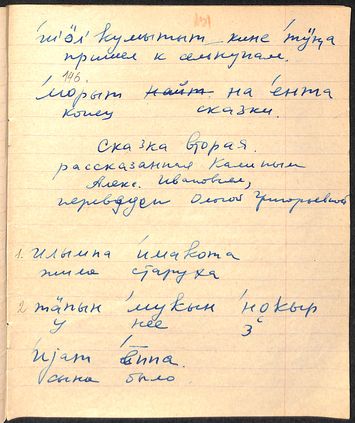 'шӧ́л' кумытыт кине 'тӱӈа
пришел к селькупам.
146.
'морыт найт на 'ента
конец сказки.
Сказка вторая.
рассказанная Калиным
Алекс. Ивановичем,
переведен Ольгой Григорьевной
1. илымпа 'имакота
жила старуха
2. тӓпын 'мукын 'нокыр
у нее 3
'иjат 'ēппа.
сына было.